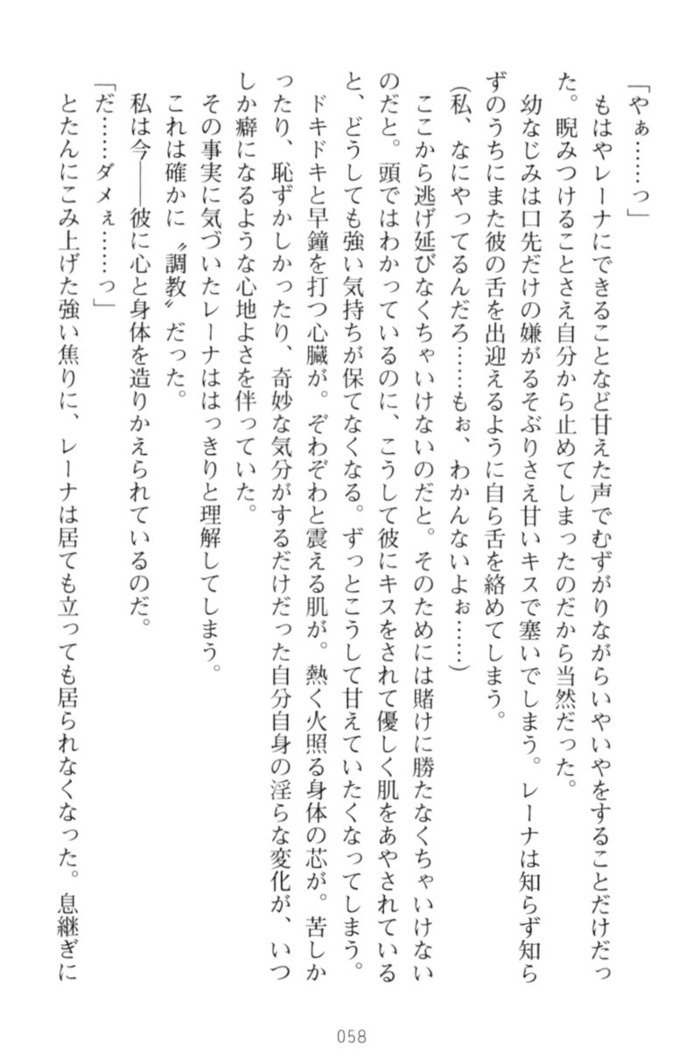 「やぁ……っ」
もはやレーナにできることなど甘えた声でむずがりながらいやいやをすることだけだっ
た。睨みつけることさえ自分から止めてしまったのだから当然だった。
幼なじみは口先だけの嫌がるそぶりさえ甘いキスで塞いでしまう。レーナは知らず知ら
ずのうちにまた彼の舌を出迎えるように自ら舌を絡めてしまう。
(私、なにやってるんだろ……もぉ、わかんないよぉ……)
ここから逃げ延びなくちゃいけないのだと。そのためには賭けに勝たなくちゃいけない
のだと。頭ではわかっているのに、こうして彼にキスをされて優しく肌をあやされている
と、どうしても強い気持ちが保てなくなる。ずっとこうして甘えていたくなってしまう。
ドキドキと早鐘を打つ心臓が。ぞわぞわと震える肌が。熱く火照る身体の芯が。苦しか
ったり、恥ずかしかったり、奇妙な気分がするだけだった自分自身の淫らな変化が、いつ
しか癖になるような心地よさを伴っていた。
その事実に気づいたレーナははっきりと理解してしまう。
これは確かに〝調教〟だった。
私は今――彼に心と身体を造りかえられているのだ。
「だ……ダメぇ……っ」
とたんにこみ上げた強い焦りに、レーナは居ても立っても居られなくなった。息継ぎに
058